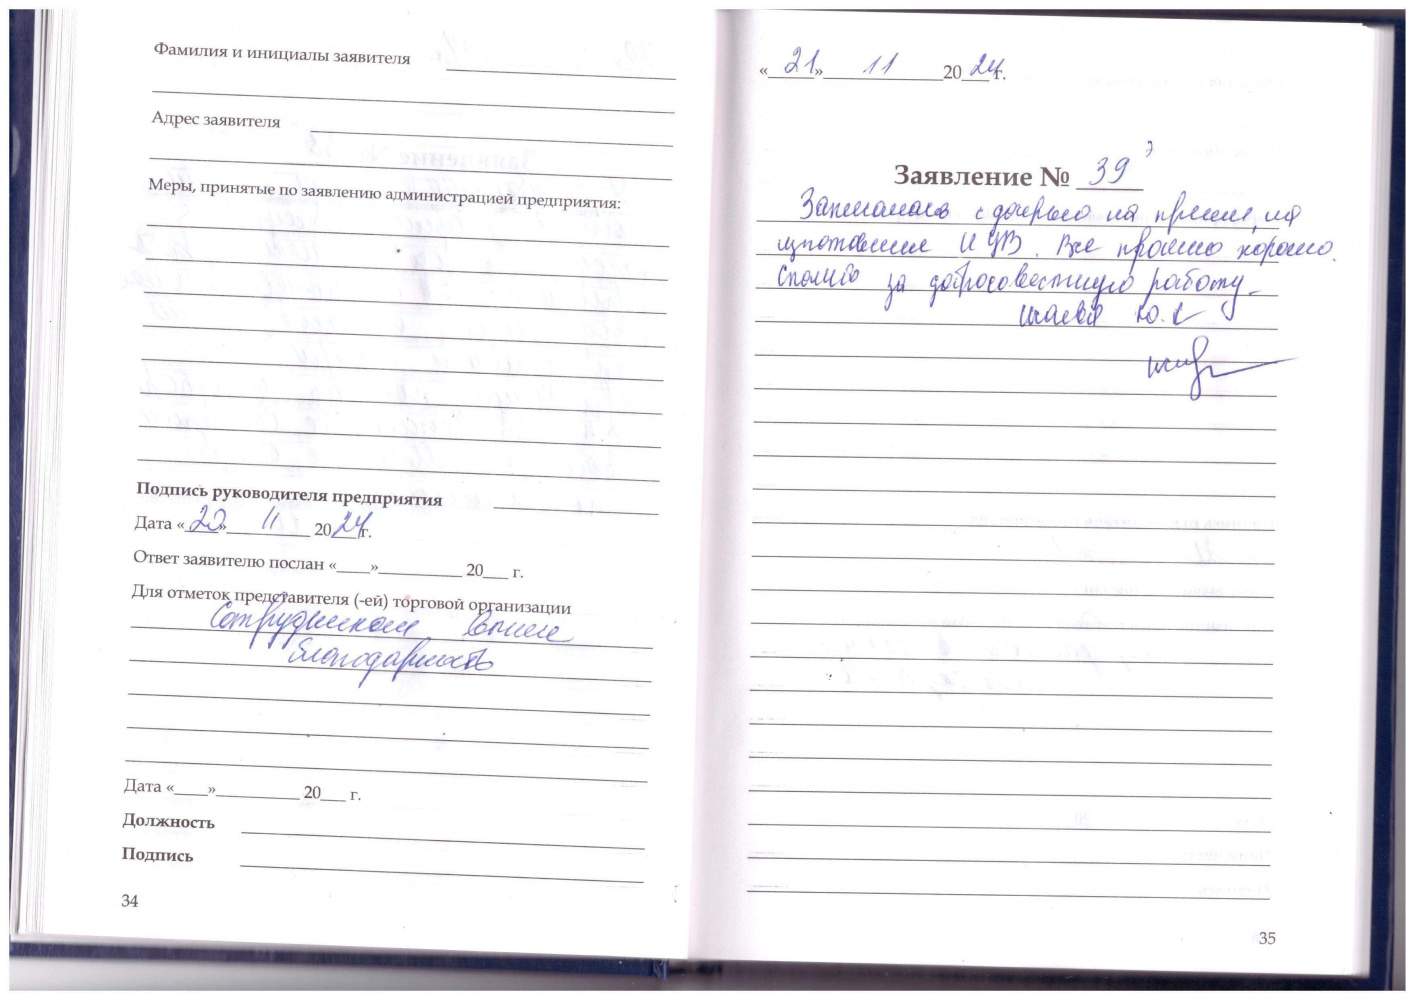 Фамилия и инициалы заявителя
Адрес заявителя
Меры, принятые по заявлению администрацией предприятия:
Подпись руководителя предприятия
Дата «20» 11 2024 г.
Ответ заявителю послан «____»__________ 20___ г.
Для отметок представителя (-ей) торговой организации
Сотрудникам
благодарность
Дата «____»__________ 20___ г.
Должность
Подпись
34
«21» 11 2024 г.
Заявление № 39
Записалась с дочерью на прием, на
изготовление ИУВ. Все прошло хорошо.
Спасибо за добросовестную работу.
Ю.К
35